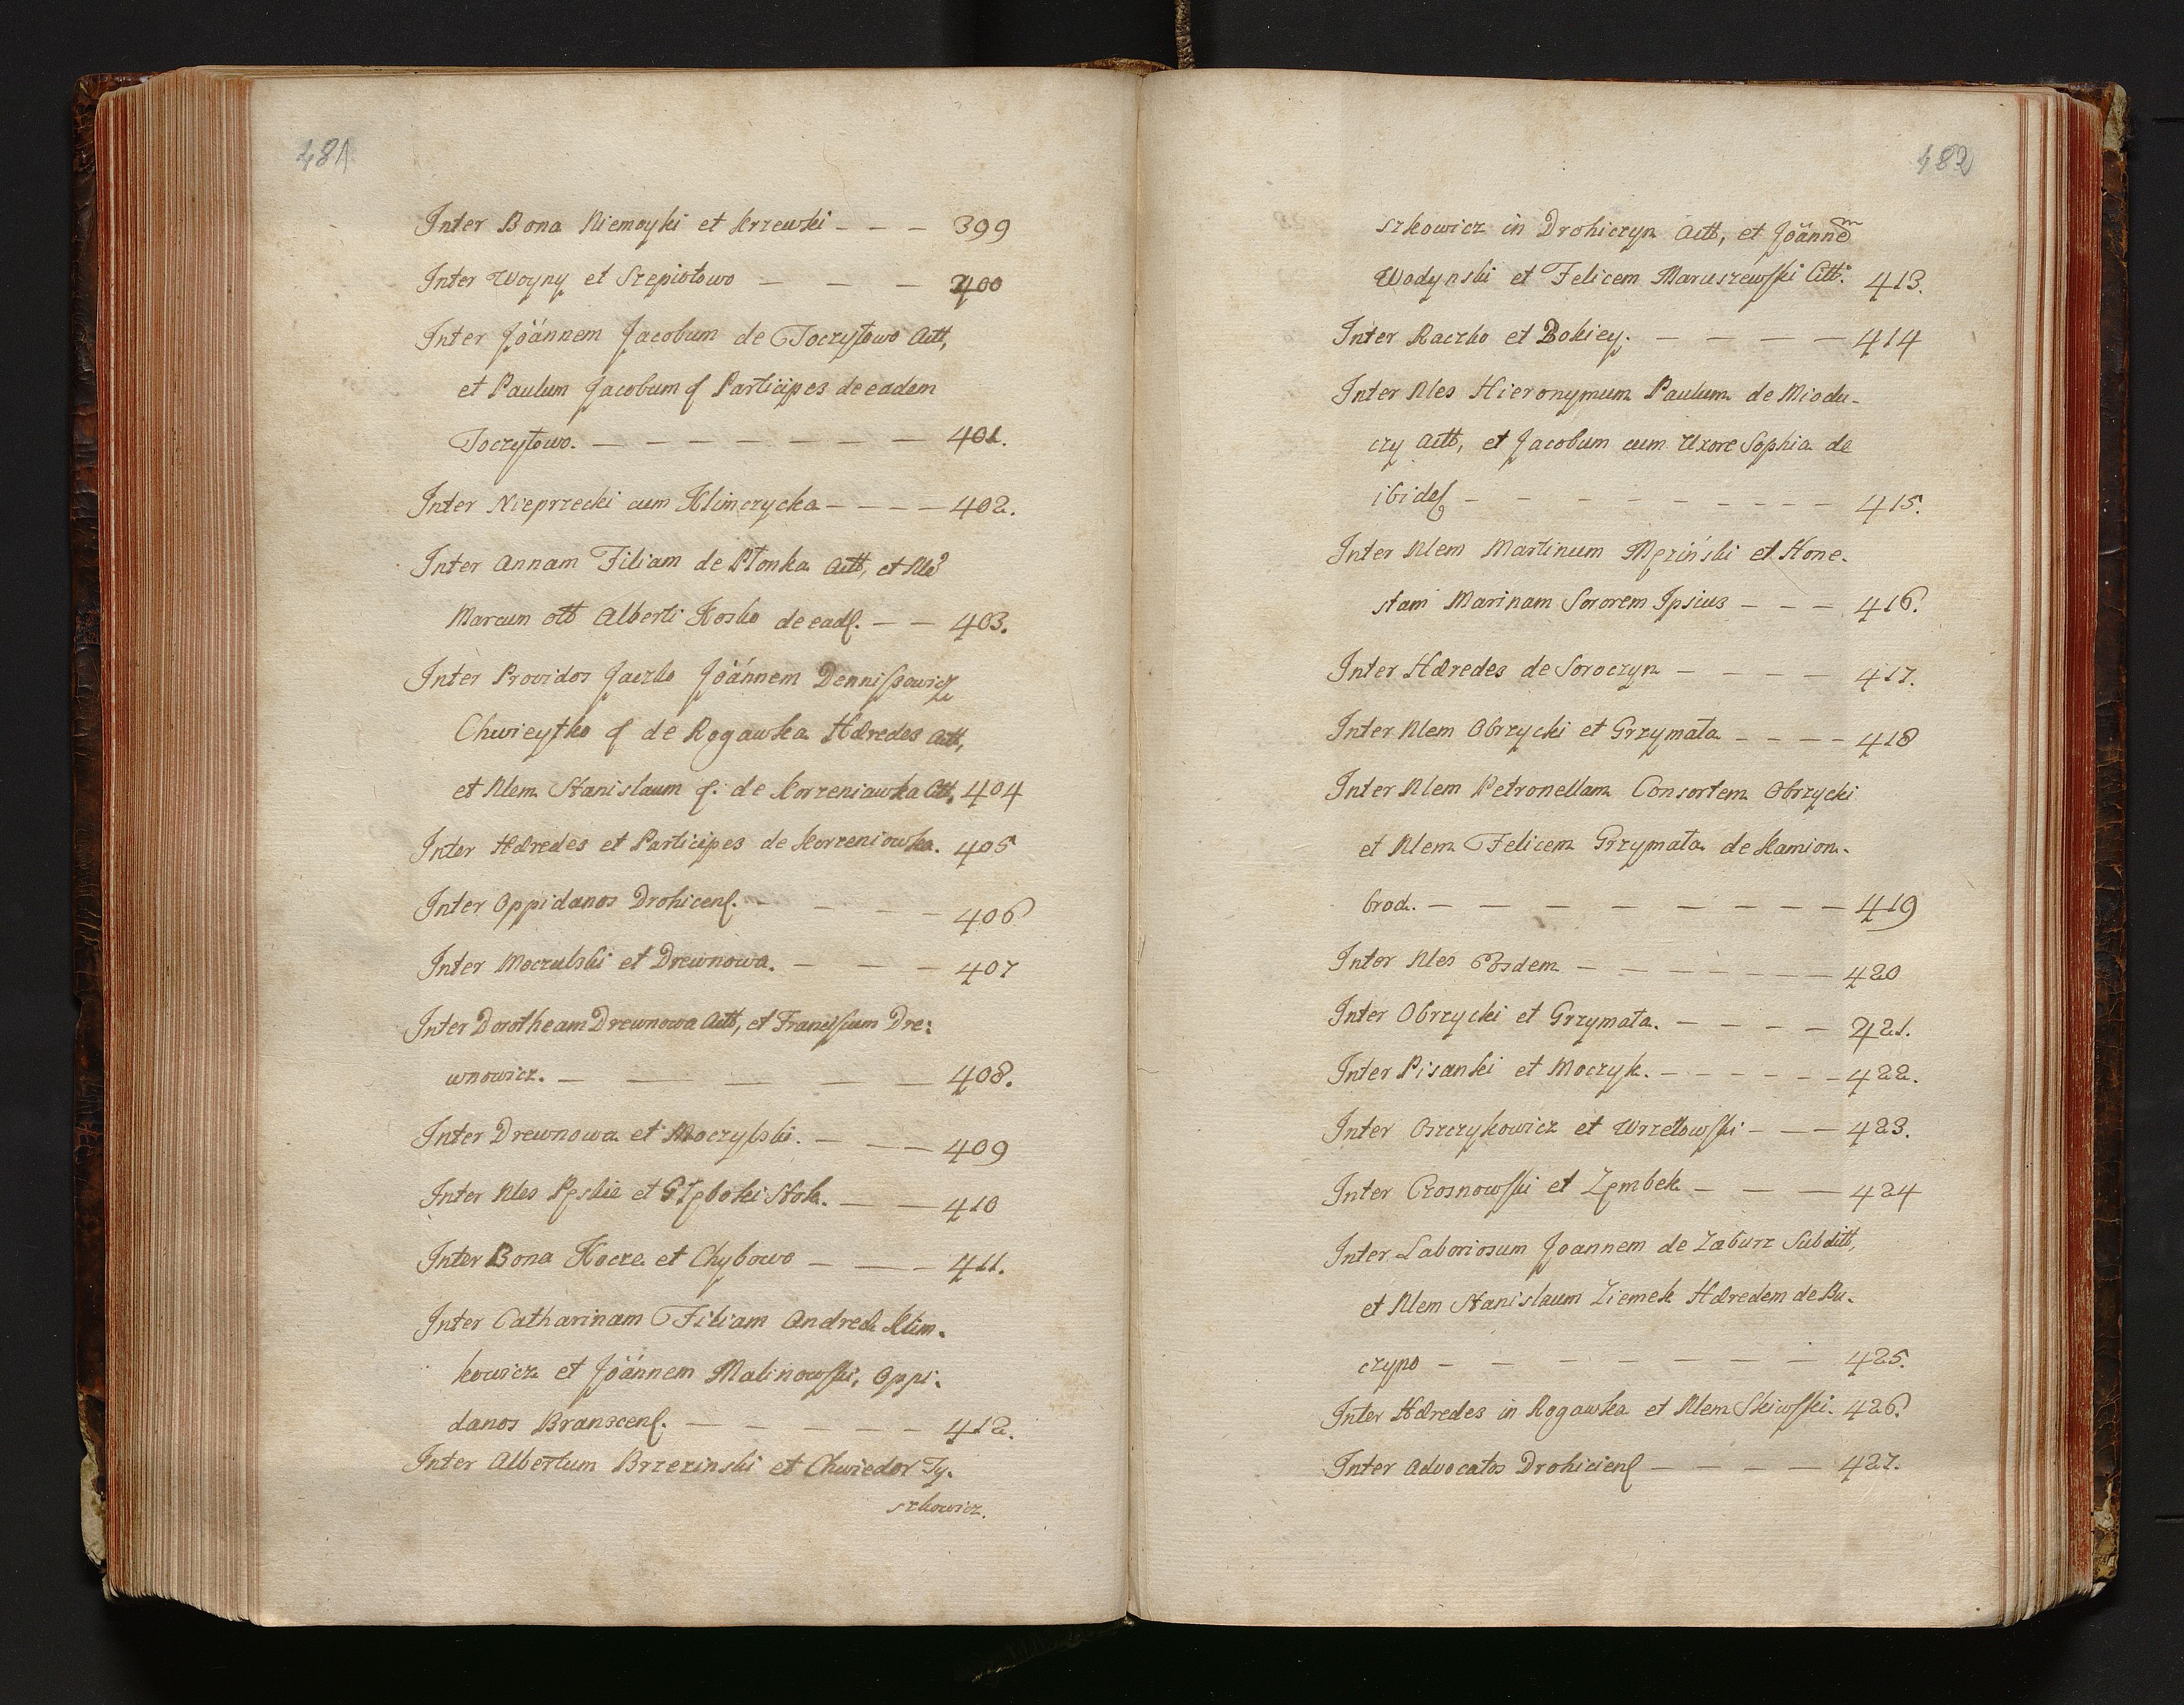 481
Inter Bona Niemoyki et Krzewki - - - 399
Inter Woyny et Szepiotowo - - - 400
Inter Joánnem Jacobum de Toczyłowo Actt,
et Paulum Jacobum q Participes de eadem
Toczyłowo. - - - - - - - 401.
Inter Nieprzecki cum Klimczycka - - - - 402.
Inter Annam Filiam de Płonka Actt, et Nle
Marcum ott Alberti Kosko de ead. - - 403.
Inter Providos Jaczko Joánnem Dennissowicz
Chwieytko q de Rogawka Hæredes Actt,
et Nlem Stanislaum q. de Korzeniawka Citt. 404
Inter Hæredes et Participes de Korzeniowka. 405
Inter Oppidanos Drohicens. - - - - 406
Inter Moczulski et Drewnowa. - - - 407
Inter Dorotheam Drewnowa Actt, et Franciscum Dre:
wnowicz. - - - - - 408.
Inter Drewnowa et Moczylski. - - - 409
Inter Nles Pęskie et Głęboki Stok. - - 410
Inter Bona Kocza et Chybowo - - - 411.
Inter Catharinam Filiam Andreæ Klim-
kowicz et Joánnem Malinowski, Oppi-
danos Branscens. - - - - - 412.
Inter Albertum Brzezinski et Chwiedor Ty-
szkowicz.
482
szkowicz in Drohiczyn Actt, et Joánnem
Wodynski et Felicem Maruszewski Citt: 413.
Inter Raczko et Bokiey. - - - - 414
Inter Nles Hieronymum Paulum de Miodu-
czy Actt, et Jacobum cum Uxore Sophia de
ibidem - - - - - - - - - 415.
Inter Nlem Martinum Męziński et Hone-
stam Marinam Sororem Ipsius - - - 416.
Inter Hæredes de Soroczyn - - - - 417.
Inter Nlem Obrzycki et Grzymała - - - - 418
Inter Nlem Petronellam Consortem Obrzycki
et Nlem Felicem Grzymała de Kamion-
brod. - - - - - - - - 419
Inter Nles Eosdem - - - - - - - 420
Inter Obrzycki et Grzymała. - - - - 421.
Inter Pisanki et Moczyk. - - - - - - 422.
Inter Oszczykowicz et Wrzellowski - - - 423.
Inter Czosnowski et Zembek - - - 424
Inter Laboriosum Joannem de Zaburz Subditt,
et Nlem Stanislaum Ziemek Hæredem de Bu-
czyno - - - - - - - 425.
Inter Hæredes in Rogawka et Nlem Skiwski. 426.
Inter Advocatos Drohiciens - - - - 427.